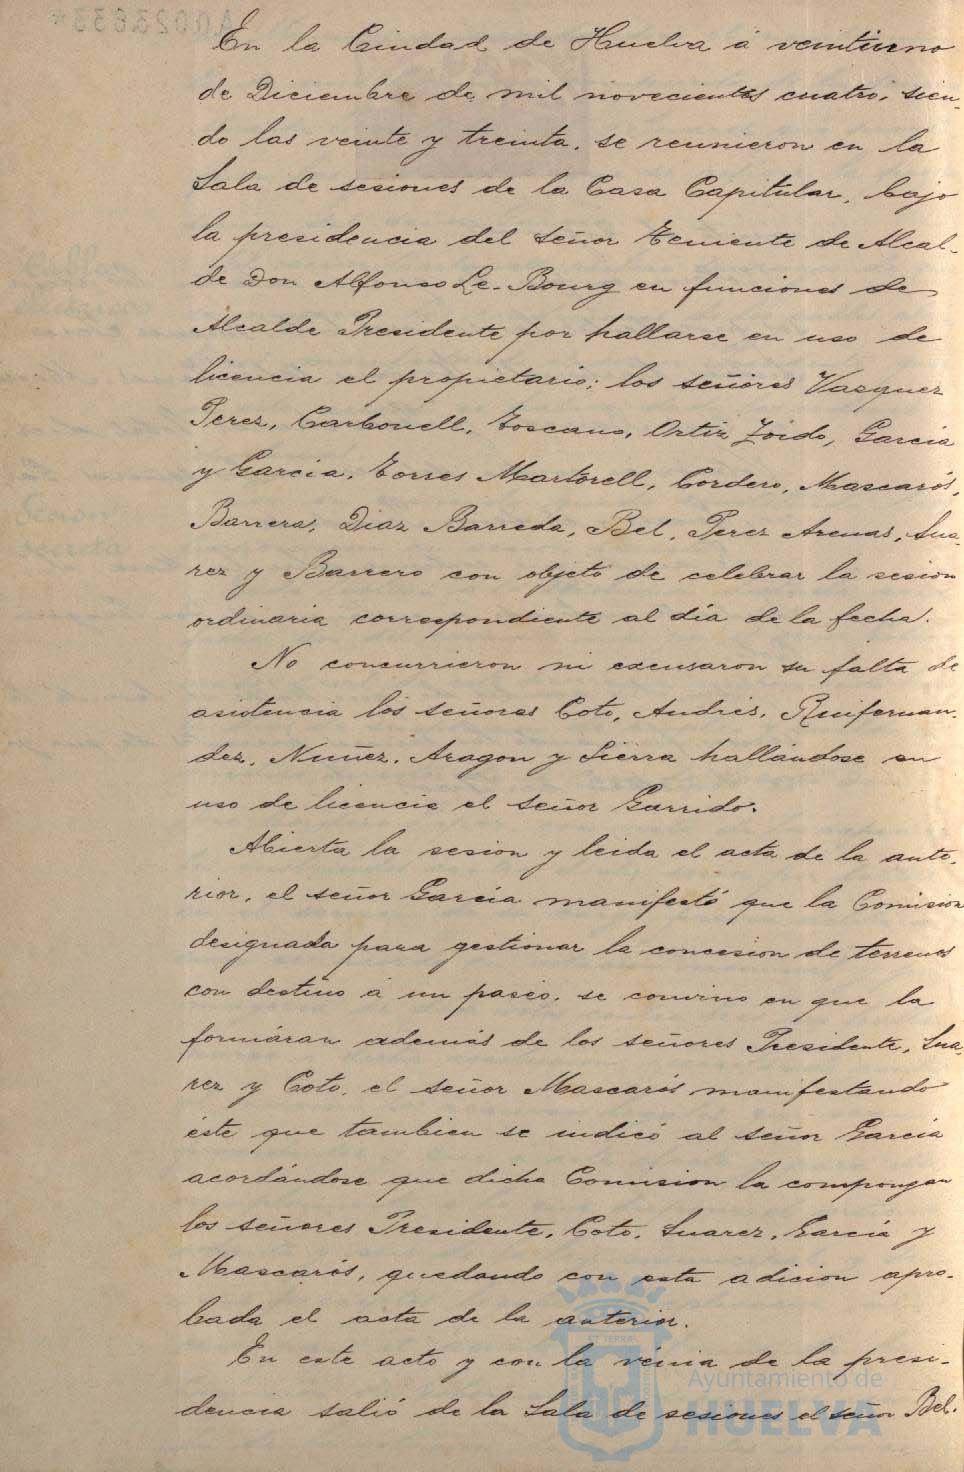 A0023633*
En la Ciudad de Huelva á veintiuno
de Diciembre de mil novecientos cuatro, sien-
do las veinte y treinta, se reunieron en la
Sala de sesiones de la Casa Capitular, bajo
la presidencia del señor Teniente de Alcal-
de Don Alfonso Le-Bourg en funciones de
Alcalde Presidente por hallarse en uso de
licencia el propietario; los señores Vasquez
Perez, Carbonell, Toscano, Ortiz Zoido, Garcia
y Garcia, Torres Martorell, Cordero, Mascarós,
Barrera, Diaz Barreda, Bel, Perez Arenas, Sua-
rez y Barrero con objeto de celebrar la sesion
ordinaria correspondiente al día de la fecha.
No concurrieron ni excusaron su falta de
asistencia los señores Coto, Andrés, Ruifernan-
dez, Nuñez, Aragon y Sierra hallándose en
uso de licencia el señor Garrido.
Abierta la sesion y leida el acta de la ante-
rior, el señor García manifestó que la Comision
designada para gestionar la concesion de terrenos
con destino á un paseo, se convino en que la
formáran además de los señores Presidente, Sua-
rez y Coto, el señor Mascarós manifestando
éste que tambien se indicó al señor García
acordándose que dicha Comision la compongan
los señores Presidente, Coto, Suarez, García y
Mascarós, quedando con esta adicion apro-
bada el acta de la anterior.
En este acto y con la vénia de la presi-
dencia salió de la Sala de sesiones el señor Bel.
Ayuntamiento de
HUELVA